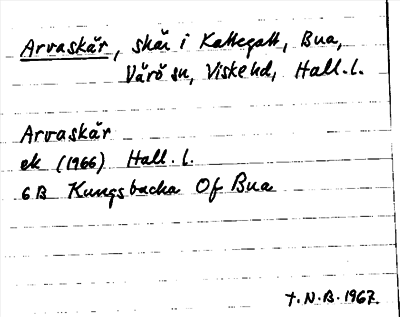 Arvaskär, skär i Kattegatt, Bua,
Värö sn, Viske hd, Hall. l.
Arvaskär
ek (1966) Hall. l.
6B Kungsbacka Of Bua
T.N.B. 1967